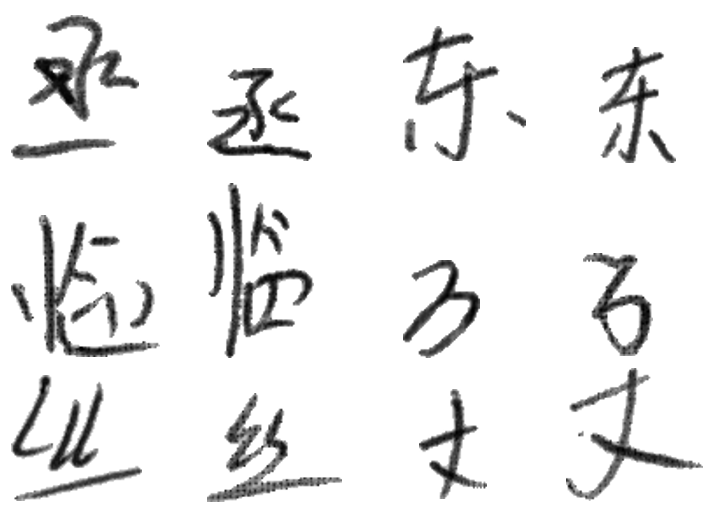 丞丞东东
临临万万
丝丝丈丈